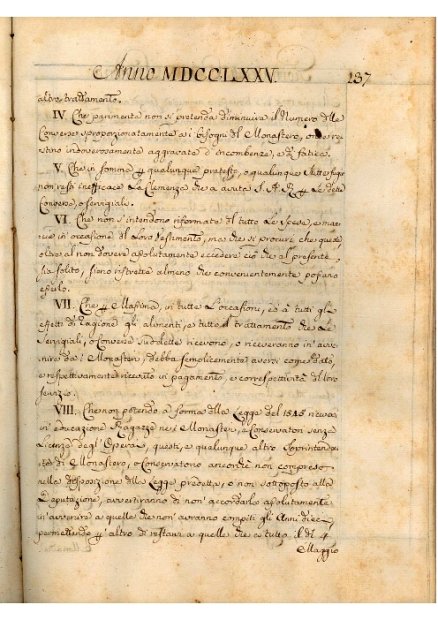 Anno MDCCLXXV. 237
altro trattamento.
IV. Che parimente non si pretenda diminuire il Numero delle
Converse sproporzionatamente a i bisogni del Monastero, onde re
stino indoverosamente aggravate d'incombenze, e di fatica.
V. Che in somma qualunque pretesto, o qualunque
non resti inefficace la Clemenza che à avuta S. A. R. per le dette
Converse, o servigiali.
VI. Che non s'intendono riformate del tutto le Spese, e mas
in occasione di loro Vestimento, ma che si procuri che queste
oltre al non dovere assolutamente eccedere ciò che al presente
sia solito, sieno ristrette almeno che convenientemente possano
esserlo.
VII. Che per Massima, in tutte l'occasioni, ed a tutti gli
effetti di ragione gli alimenti, e tutto il trattamento che le
Servigiali, o Converse suddette ricevono, o riceveranno in avve
nire da i Monasteri, debba semplicemente aversi come dato,
e respettivamente ricevuto in pagamento, e correspettività di loro
servizio.
VIII. Che non potendo a forma della Legge del 1545 riceversi
in educazione Ragazze nei Monasteri, e Conservatori senza
Licenza degl'Operai, questi, e qualunque altro Soprintenden
di Monastero, o Conservatorio ancorchè non compreso
nella disposizione della Legge predetta, o non sottoposto alla
Deputazione, avvertiranno di non accordarla assolutamente
in avvenire a quelle che non avranno compiti gli Anni dieci,
permettendo per altro di restarvi a quelle che a tutto il dì 4
Maggio